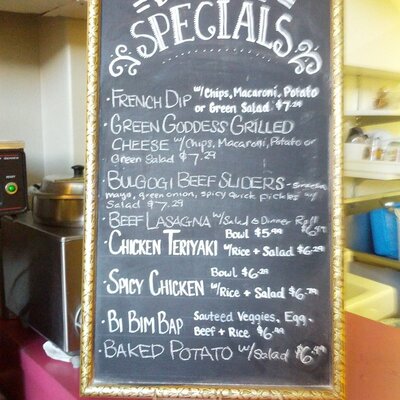 SPECIALS
· FRENCH DIP w/Chips, Macaroni, Potato
or Green Salad $7.29
· GREEN GODDESS GRILLED
CHEESE w/Chips, Macaroni, Potato or
Green Salad $7.29
· BULGOGI BEEF SLIDERS -
mayo, green onion, spicy quick pickles w/
Salad $7.29
· BEEF LASAGNA w/Salad & Dinner Roll
$6.49
Bowl $5.99
· CHICKEN TERIYAKI w/Rice + Salad $6.29
Bowl $6.29
· SPICY CHICKEN w/Rice + Salad $6.79
· BI BIM BAP Sauteed Veggies, Egg,
Beef + Rice $6.99
· BAKED POTATO w/Salad $6.49